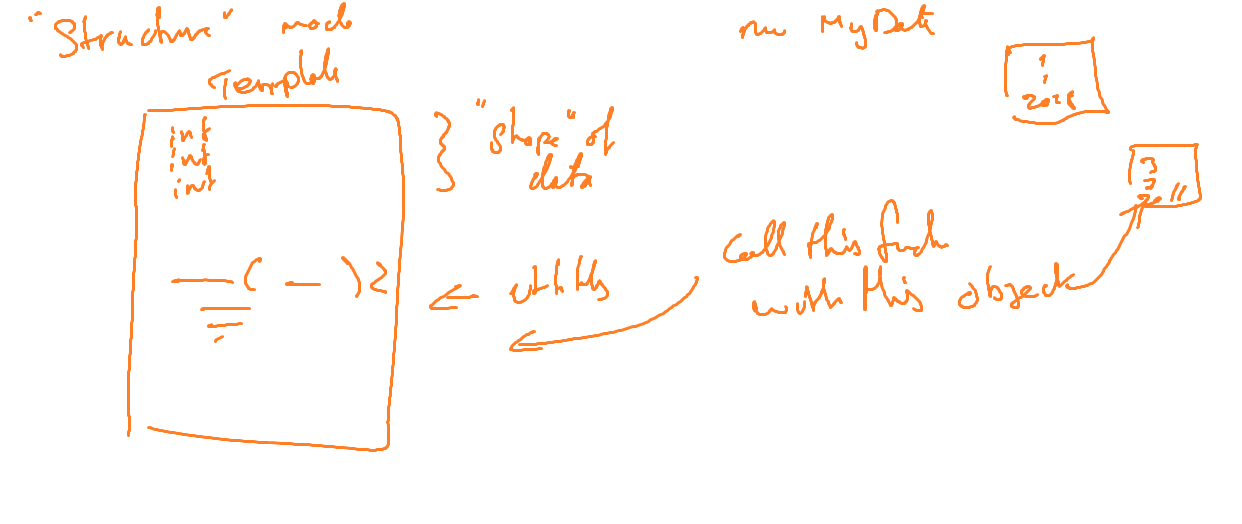 "Structure" mode
Template
int
int
int
"Shape" of
data
( ) {
utilities
new MyDate
1
1
2025
3
3
call this func
with this object